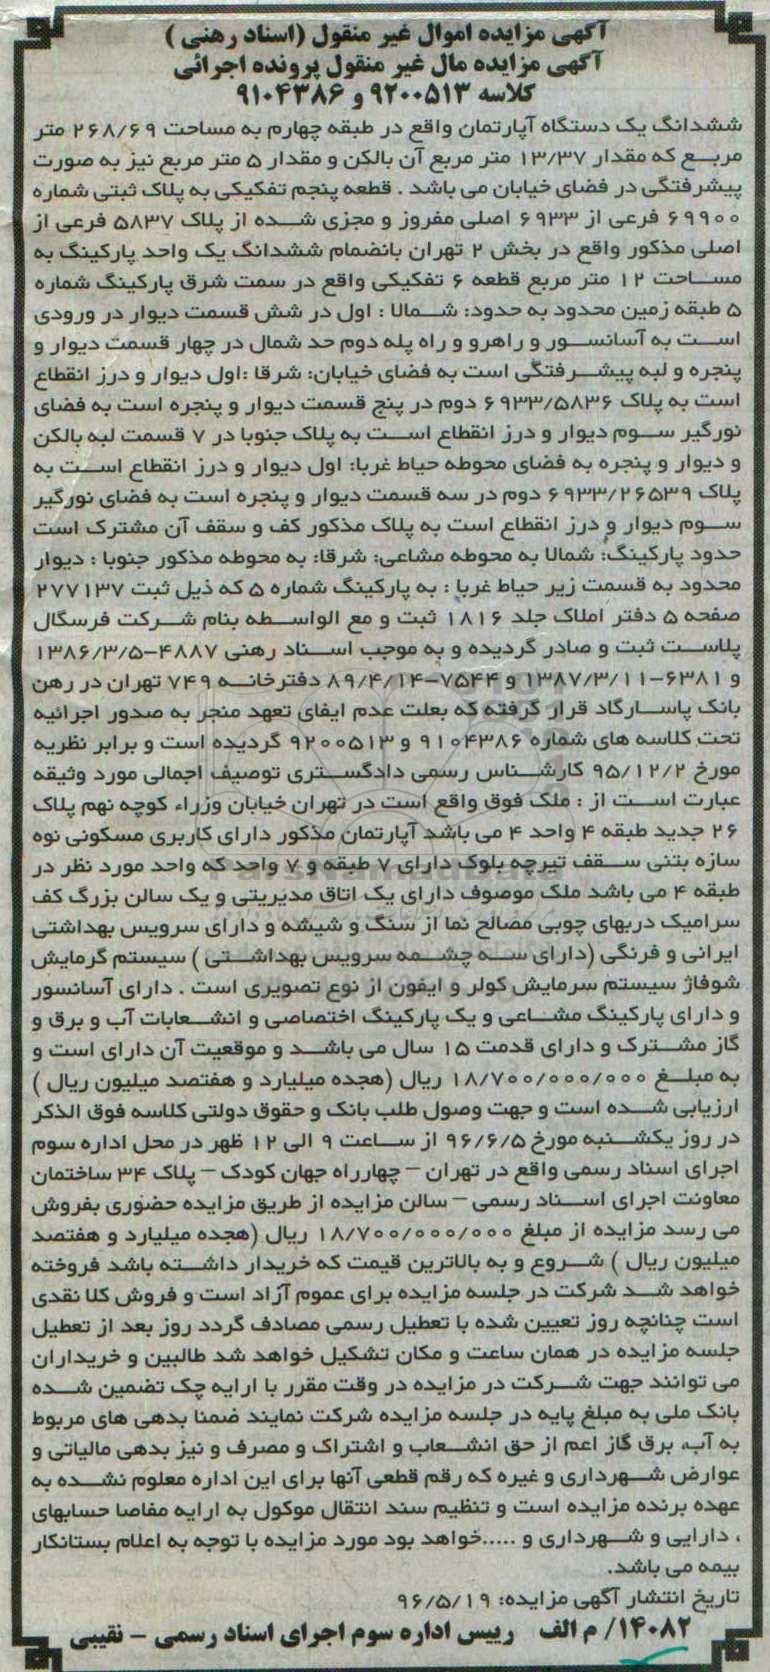 آگهی مزایده اموال غیر منقول (اسناد رهنی )
آگهی مزایده مال غیر منقول پرونده اجرائی
کلاسه ۹۲۰۰۵۱۳ و ۹۱۰۴۳۸۶
ششدانگ یک دستگاه آپارتمان واقع در طبقه چهارم به مساحت ۲۶۸/۶۹ متر
مربع که مقدار ۱۳/۳۷ متر مربع آن بالکن و مقدار ۵ متر مربع نیز به صورت
پیشرفتگی در فضای خیابان می باشد . قطعه پنجم تفکیکی به پلاک ثبتی شماره
۶۹۹۰۰ فرعی از ۶۹۳۳ اصلی مفروز و مجزی شده از پلاک ۵۸۳۷ فرعی از
اصلی مذکور واقع در بخش ۲ تهران بانضمام ششدانگ یک واحد پارکینگ به
مساحت ۱۲ متر مربع قطعه ۶ تفکیکی واقع در سمت شرق پارکینگ شماره
۵ طبقه زمین محدود به حدود: شمالا : اول در شش قسمت دیوار در ورودی
است به آسانسور و راهرو و راه پله دوم حد شمال در چهار قسمت دیوار و
پنجره و لبه پیشرفتگی است به فضای خیابان: شرقا :اول دیوار و درز انقطاع
است به پلاک ۶۹۳۳/۵۸۳۶ دوم در پنج قسمت دیوار و پنجره است به فضای
نورگیر سوم دیوار و درز انقطاع است به پلاک جنوبا در ۷ قسمت لبه بالکن
و دیوار و پنجره به فضای محوطه حیاط غربا: اول دیوار و درز انقطاع است به
پلاک ۶۹۳۳/۲۶۵۳۹ دوم در سه قسمت دیوار و پنجره است به فضای نورگیر
سوم دیوار و درز انقطاع است به پلاک مذکور کف و سقف آن مشترک است
حدود پارکینگ: شمالا به محوطه مشاعی: شرقا: به محوطه مذکور جنوبا : دیوار
محدود به قسمت زیر حیاط غربا : به پارکینگ شماره ۵ که ذیل ثبت ۲۷۷۱۳۷
صفحه ۵ دفتر املاک جلد ۱۸۱۶ ثبت و مع الواسطه بنام شرکت فرسگال
پلاست ثبت و صادر گردیده و به موجب اسناد رهنی ۴۸۸۷-۱۳۸۶/۳/۵
و ۶۳۸۱-۱۳۸۷/۳/۱۱ و ۷۵۴۴-۸۹/۴/۱۴ دفترخانه ۷۴۹ تهران در رهن
بانک پاسارگاد قرار گرفته که بعلت عدم ایفای تعهد منجر به صدور اجرائیه
تحت کلاسه های شماره ۹۱۰۴۳۸۶ و ۹۲۰۰۵۱۳ گردیده است و برابر نظریه
مورخ ۹۵/۱۲/۲ کارشناس رسمی دادگستری توصیف اجمالی مورد وثیقه
عبارت است از : ملک فوق واقع است در تهران خیابان وزراء کوچه نهم پلاک
۲۶ جدید طبقه ۴ واحد ۴ می باشد آپارتمان مذکور دارای کاربری مسکونی نوه
سازه بتنی سقف تیرچه بلوک دارای ۷ طبقه و ۷ واحد که واحد مورد نظر در
طبقه ۴ می باشد ملک موصوف دارای یک اتاق مدیریتی و یک سالن بزرگ کف
سرامیک دربهای چوبی مصالح نما از سنگ و شیشه و دارای سرویس بهداشتی
ایرانی و فرنگی (دارای سه چشمه سرویس بهداشتی ) سیستم گرمایش
شوفاژ سیستم سرمایش کولر و ایفون از نوع تصویری است . دارای آسانسور
و دارای پارکینگ مشاعی و یک پارکینگ اختصاصی و انشعابات آب و برق و
گاز مشترک و دارای قدمت ۱۵ سال می باشد و موقعیت آن دارای است و
به مبلغ ۱۸/۷۰۰/۰۰۰/۰۰۰ ریال (هجده میلیارد و هفتصد میلیون ریال )
ارزیابی شده است و جهت وصول طلب بانک و حقوق دولتی کلاسه فوق الذکر
در روز یکشنبه مورخ ۹۶/۶/۵ از ساعت ۹ الی ۱۲ ظهر در محل اداره سوم
اجرای اسناد رسمی واقع در تهران – چهارراه جهان کودک – پلاک ۳۴ ساختمان
معاونت اجرای اسناد رسمی – سالن مزایده از طریق مزایده حضوری بفروش
می رسد مزایده از مبلغ ۱۸/۷۰۰/۰۰۰/۰۰۰ ریال (هجده میلیارد و هفتصد
میلیون ریال ) شروع و به بالاترین قیمت که خریدار داشته باشد فروخته
خواهد شد شرکت در جلسه مزایده برای عموم آزاد است و فروش کلا نقدی
است چنانچه روز تعیین شده با تعطیل رسمی مصادف گردد روز بعد از تعطیل
جلسه مزایده در همان ساعت و مکان تشکیل خواهد شد طالبین و خریداران
می توانند جهت شرکت در مزایده در وقت مقرر با ارایه چک تضمین شده
بانک ملی به مبلغ پایه در جلسه مزایده شرکت نمایند ضمنا بدهی های مربوط
به آب، برق گاز اعم از حق انشعاب و اشتراک و مصرف و نیز بدهی مالیاتی و
عوارض شهرداری و غیره که رقم قطعی آنها برای این اداره معلوم نشده به
عهده برنده مزایده است و تنظیم سند انتقال موکول به ارایه مفاصا حسابهای
، دارایی و شهرداری و .....خواهد بود مورد مزایده با توجه به اعلام بستانکار
بیمه می باشد.
تاریخ انتشار آگهی مزایده: ۹۶/۵/۱۹
۱۴۰۸۲/ م الف رییس اداره سوم اجرای اسناد رسمی – نقیبی